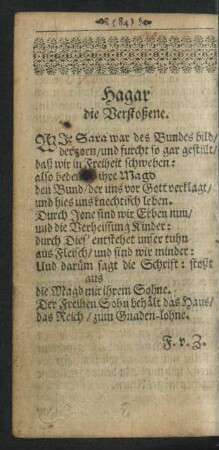 (84)
Hagar
die Verstoßene.
Sara war des Bundes bild/
der zorn/und furcht so gar gestillt/
daß wir in Freiheit schweben:
also ihre Magd
den Bund/der uns vor Gott verklagt/
und hies uns knechtisch leben.
Durch Jene sind wir Erben nun/
und die Verheissung Kinder:
durch Dies' entstehet unser tuhn
aus Fleisch/und sind wir minder:
Und darüm sagt die Schrift: stoßt
aus
die Magd mit ihrem Sohne.
Der Freihen Sohn behält das Haus/
das Reich/zum Gnaden-lohne.
F. v. Z.